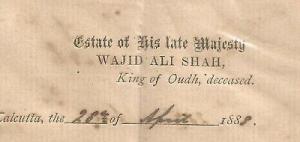 Estate of His late Majesty
WAJID ALI SHAH,
King of Oudh, deceased.
Calcutta, the 28th of April 1888.